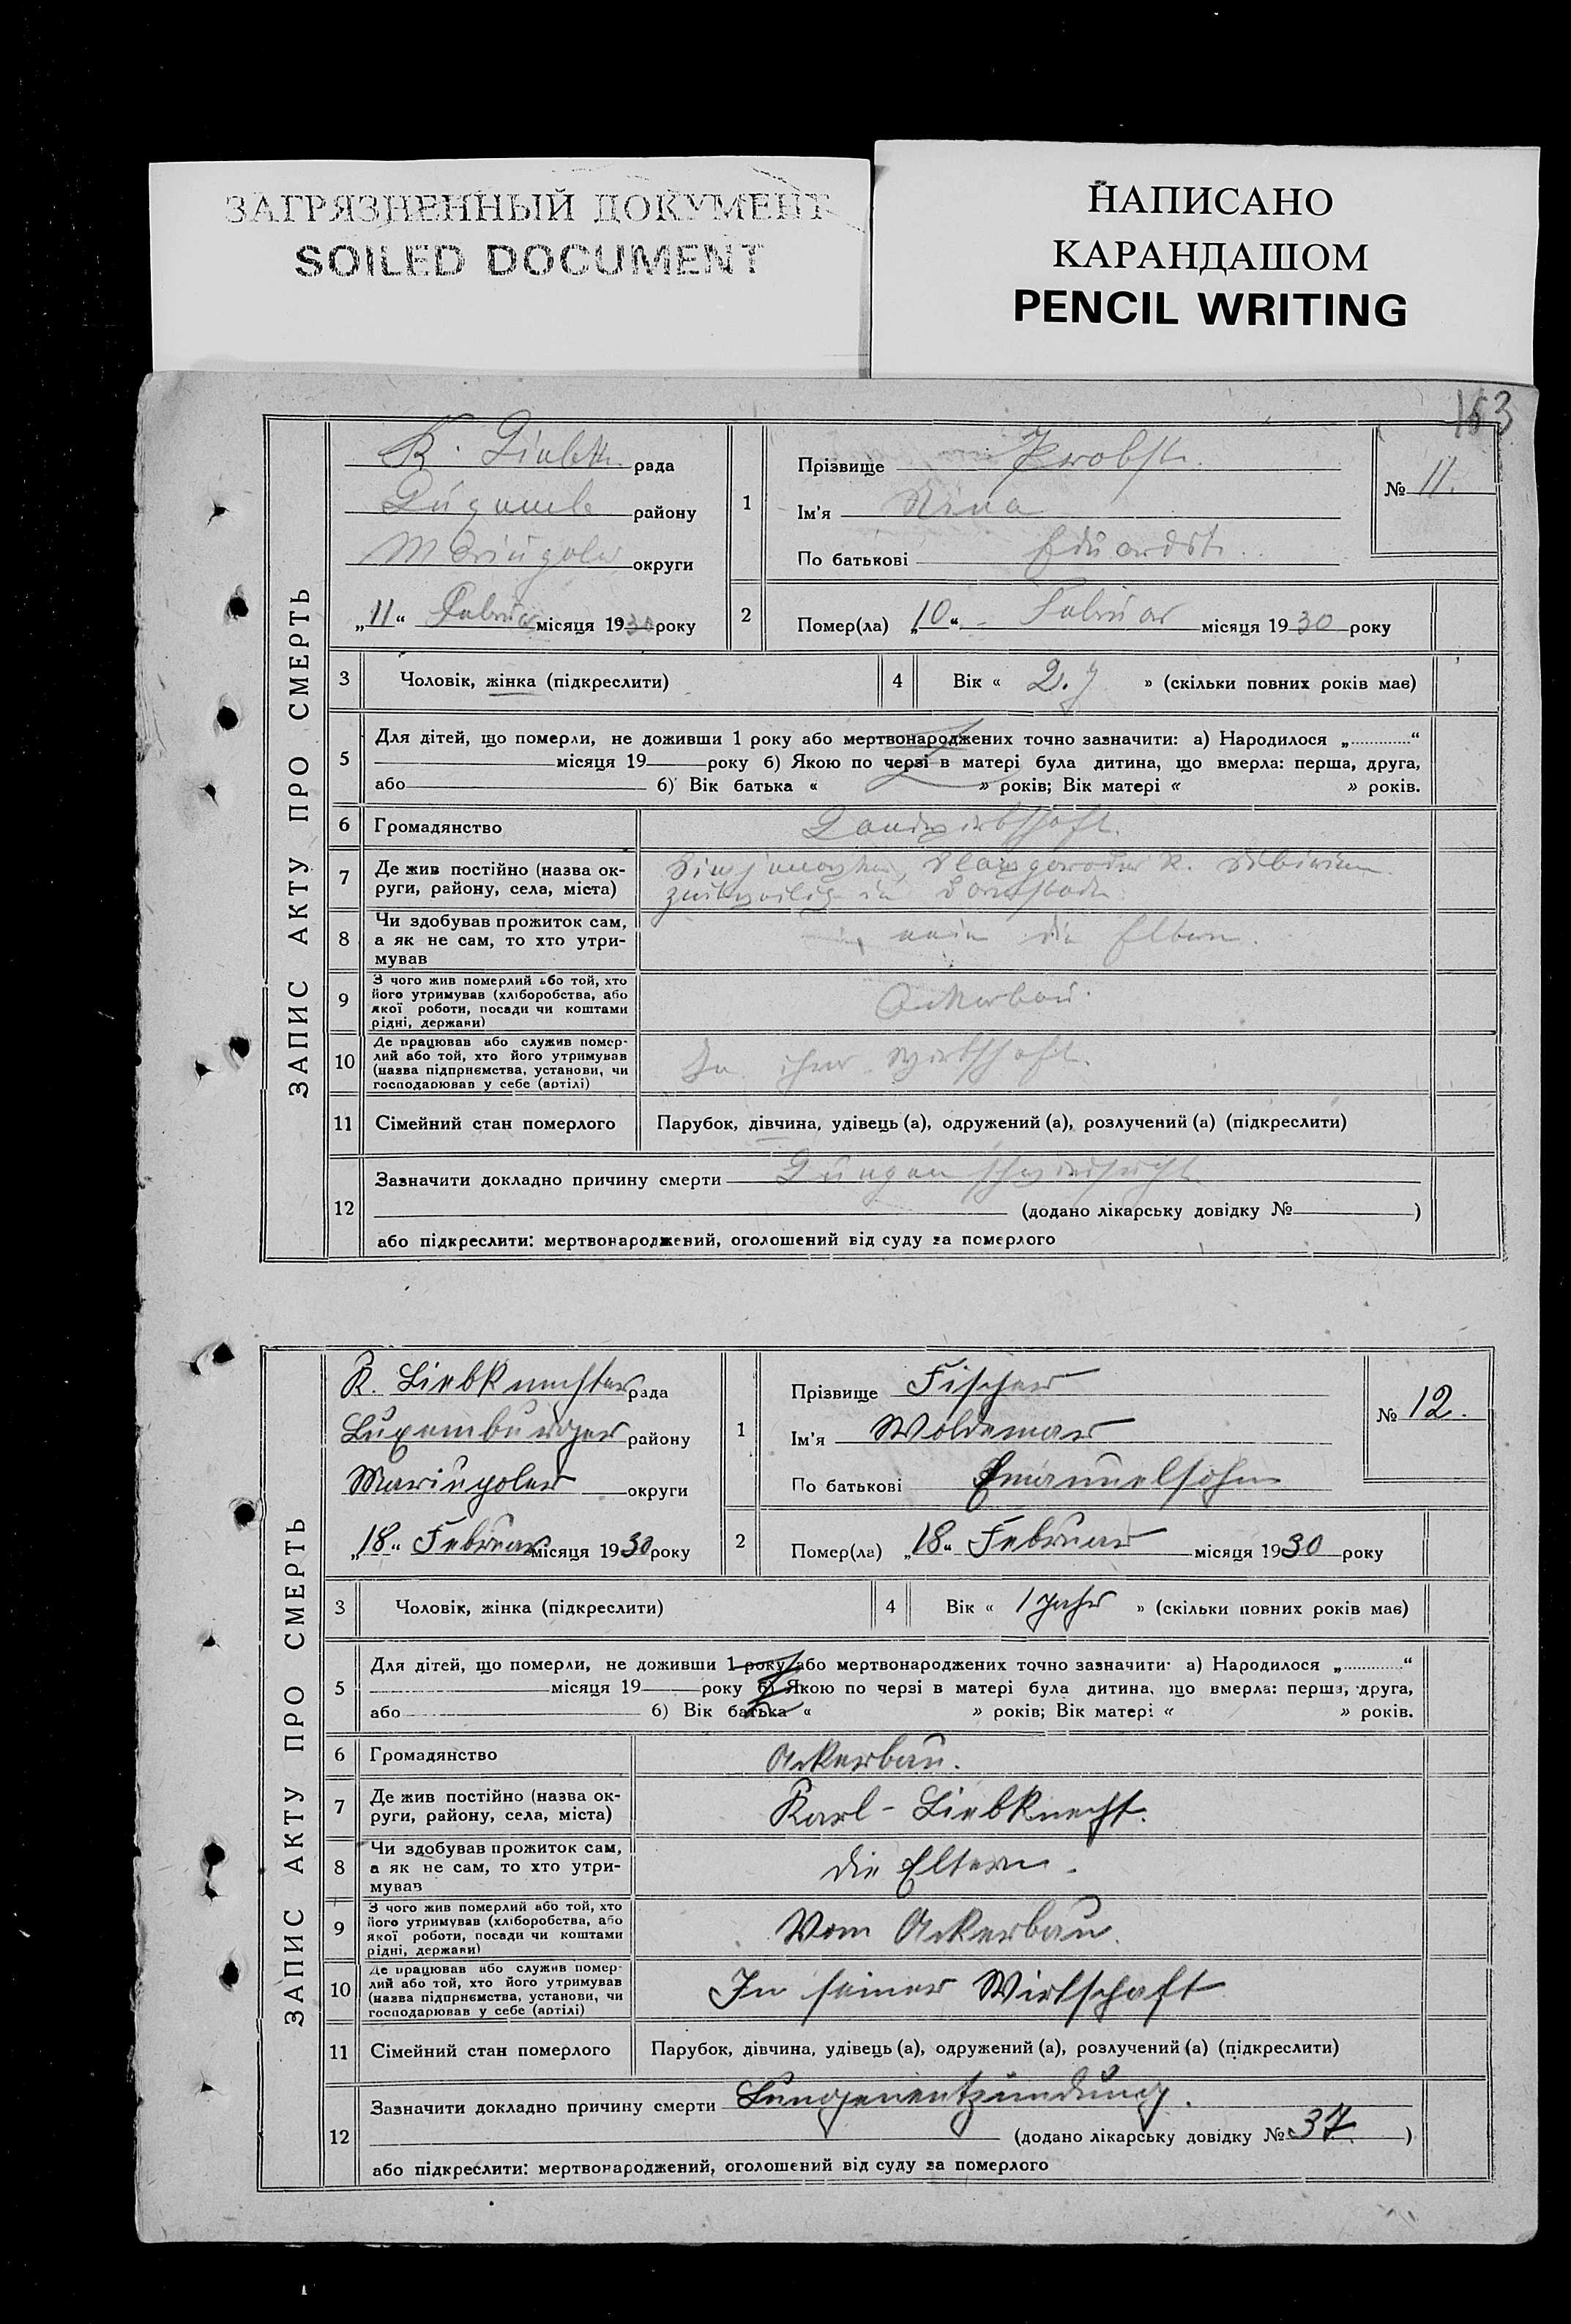 ЗАГРЯЗНЕННЫЙ ДОКУМЕНТ
SOILED DOCUMENT
НАПИСАНО
КАРАНДАШОМ
PENCIL WRITING
163
ЗАПИС АКТУ ПРО СМЕРТЬ
К. рада
району
округи
„11“ Februar місяця 1930 року
1
Прізвище Probst
Ім'я Nina
По батькові Eduardst.
№ 11.
2
Помер(ла) „10“ Februar місяця 1930 року
3 Чоловік, жінка (підкреслити)
4 Вік « 2. J » (скільки повних років має)
5
Для дітей, що померли, не доживши 1 року або мертвонароджених точно зазначити: а) Народилося „ “
місяця 19 року б) Якою по черзі в матері була дитина, що вмерла: перша, друга,
або б) Вік батька « » років; Вік матері « » років.
6 Громадянство Landwirtschaft.
7 Де жив постійно (назва ок-
руги, району, села, міста)
zeitweilig in
8 Чи здобував прожиток сам,
а як не сам, то хто утри-
мував
nein die Eltern.
9 З чого жив померлий або той, хто
його утримував (хліборобства, або
якої роботи, посади чи коштами
рідні, держави)
Ackerbau.
10 Де працював або служив помер-
лий або той, хто його утримував
(назва підприємства, установи, чи
господарював у себе (артілі)
In ihrer Wirtschaft.
11 Сімейний стан померлого Парубок, дівчина, удівець (а), одружений (а), розлучений (а) (підкреслити)
12
Зазначити докладно причину смерти Lungenschwindsucht
(додано лікарську довідку № )
або підкреслити: мертвонароджений, оголошений від суду за померлого
ЗАПИС АКТУ ПРО СМЕРТЬ
K. Liebknechter рада
Luxemburger району
Mariupoler округи
„18“ Februar місяця 1930 року
1
Прізвище Fischer
Ім'я Woldemar
По батькові Emanuelsohn
№ 12.
2
Помер(ла) „18“ Februar місяця 1930 року
3 Чоловік, жінка (підкреслити)
4 Вік « 1 Jahr » (скільки повних років має)
5
Для дітей, що померли, не доживши 1 року або мертвонароджених точно зазначити: а) Народилося „ “
місяця 19 року б) Якою по черзі в матері була дитина, що вмерла: перша, друга,
або б) Вік батька « » років; Вік матері « » років.
6 Громадянство Ackerbau.
7 Де жив постійно (назва ок-
руги, району, села, міста)
Karl-Liebknecht.
8 Чи здобував прожиток сам,
а як не сам, то хто утри-
мував
die Eltern.
9 З чого жив померлий або той, хто
його утримував (хліборобства, або
якої роботи, посади чи коштами
рідні, держави)
Vom Ackerbau.
10 Де працював або служив помер-
лий або той, хто його утримував
(назва підприємства, установи, чи
господарював у себе (артілі)
In seiner Wirtschaft
11 Сімейний стан померлого Парубок, дівчина, удівець (а), одружений (а), розлучений (а) (підкреслити)
12
Зазначити докладно причину смерти Lungenentzündung.
(додано лікарську довідку № 37 )
або підкреслити: мертвонароджений, оголошений від суду за померлого